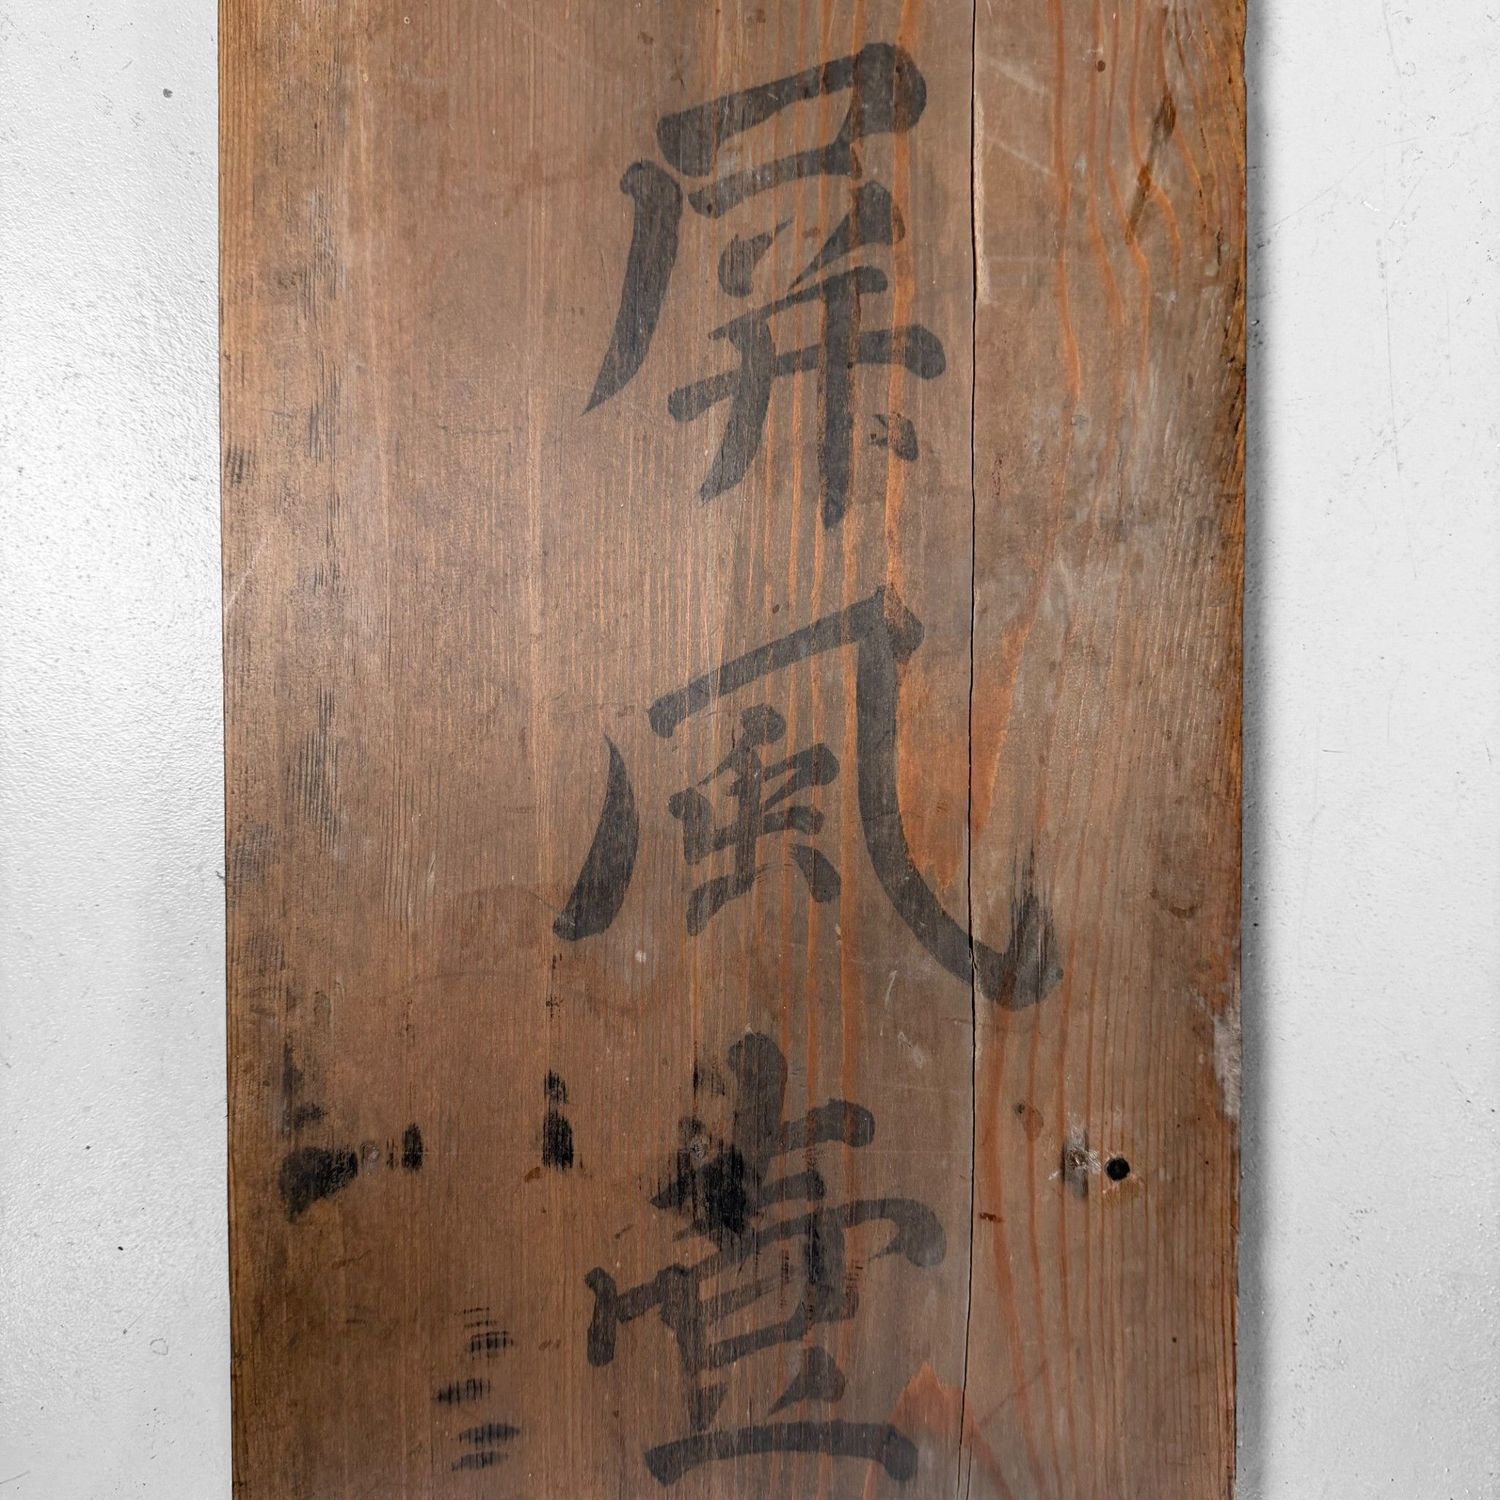 屏風壹